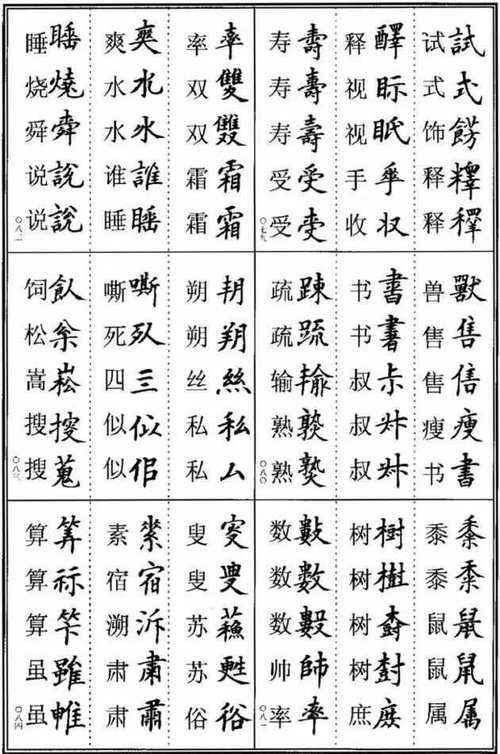 试試
式式
饰餝
释釋
释釋
释醳
视眎
视眡
手手
收収
寿壽
寿壽
寿壽
受受
受受
〇七九
兽獸
售售
售售
瘦瘦
书書
书書
书書
叔尗
叔村
叔
疏踈
疏疏
输输
熟
熟
〇八〇
黍黍
黍黍
鼠鼠
鼠鼠
属属
树樹
树樹
树
树尌
庶庻
数數
数数
数
帅師
率率
〇八一
率率
双雙
双雙
霜霜
霜霜
爽爽
水水
水水
谁誰
睡睡
睡睡
烧燒
舜舜
说説
说說
〇八二
朔朔
朔朔
丝絲
私私
私厶
嘶嘶
死死
四三
似似
似佀
饲飤
松枀
嵩崧
搜搜
搜蒐
〇八三
叟叜
叟叟
苏蘇
苏甦
俗俗
素素
宿宿
溯泝
肃肅
肃肅
算筭
算祘
算笇
虽雖
虽帷
〇八四